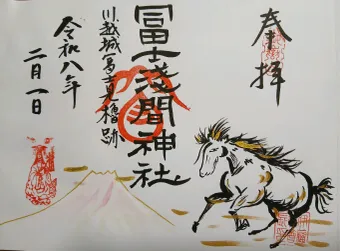 奉拝
冨士浅間神社
川越城富士見櫓跡
令和八年
二月一日